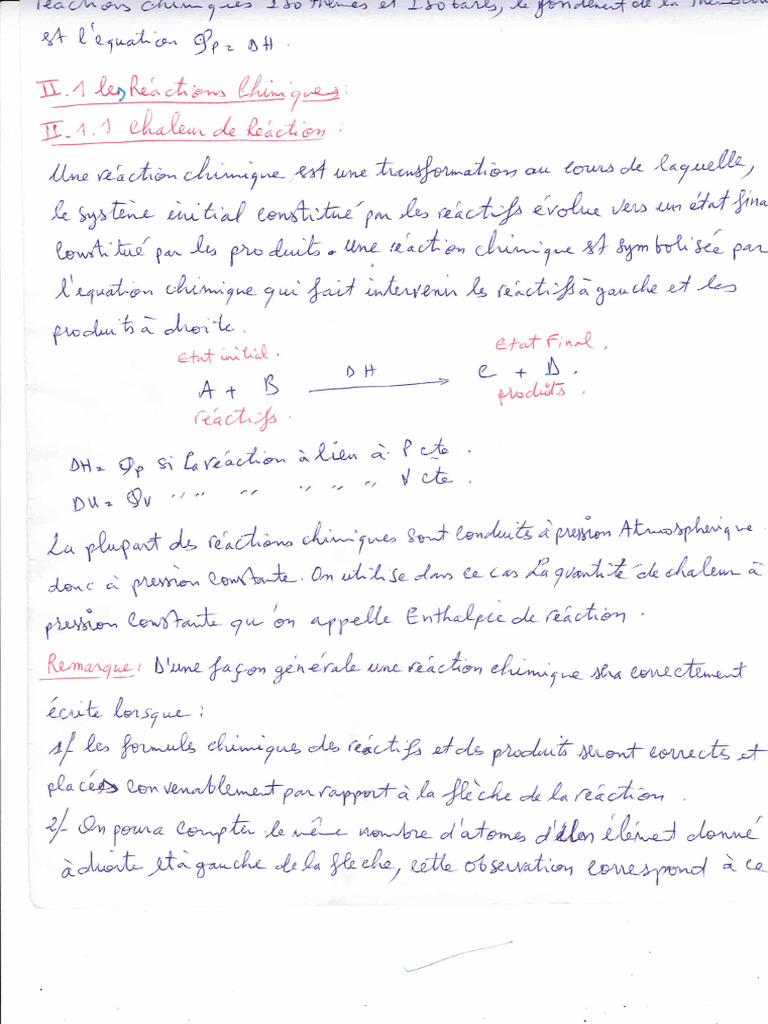 réactions chimiques isothèmes et isobares, le fondement de la
est l'équation Qp = DH.
II.1 les Réactions Chimiques:
II-1.1 Chaleur de Réaction:
Une réaction chimique est une transformation au cours de laquelle,
le système initial constitué par les réactifs évolue vers un état fina
constitué par les produits. Une réaction chimique est symbolisée par
l'equation chimique qui fait intervenir les réactifs à gauche et les
produits à droite.
Etat initial. Etat Final.
A + B DH C + D.
réactifs. produits.
DH = Qp si la réaction à lieu à P cte.
DU = Qv " " " " " " V cte.
La plupart des réactions chimiques sont conduits à pression Atmospherique
donc à pression constante. On utilise dans ce cas La quantité de chaleur à
pression constante qu'on appelle Enthalpie de réaction.
Remarque: D'une façon générale une réaction chimique sera correctement
écrite lorsque:
1/ les formules chimiques des réactifs et des produits seront corrects et
placés convenablement par rapport à la flèche de la réaction.
2/- On poura compter le même nombre d'atomes élément donné
à droite et à gauche de la fleche, cette observation correspond à ce